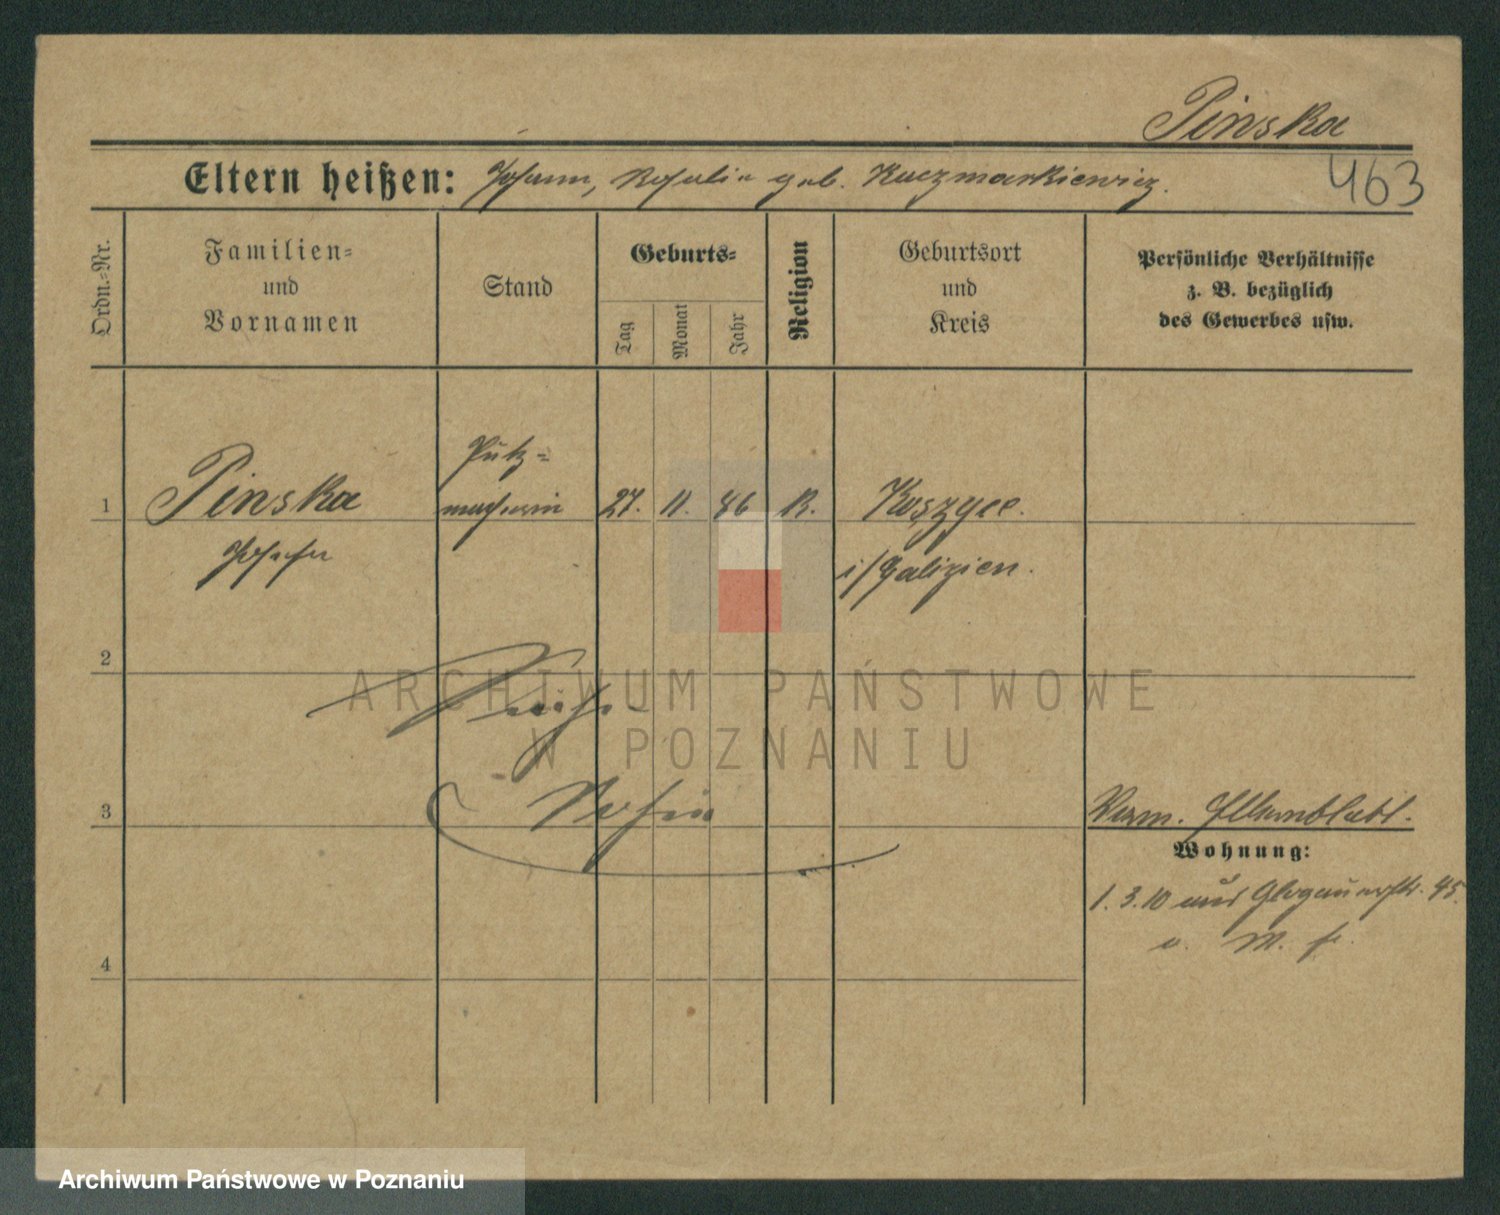 Pinska
463
Eltern heißen: Johann, Rosalie geb. Kaczmarkiewicz.
Ordn.-Nr.
Familien-
und
Vornamen
Stand
Geburts-
Tag
Monat
Jahr
Religion
Geburtsort
und
Kreis
Persönliche Verhältnisse
z. B. bezüglich
des Gewerbes usw.
Putz-
1 Pinska macherin 27. 11. 86 K.
Josefa i/Galizien.
2
3
Verm. Elternblatt.
Wohnung:
1. 3. 10 aus Glogauerstr. 45.
4
ARCHIWUM PAŃSTWOWE
W POZNANIU
Archiwum Państwowe w Poznaniu